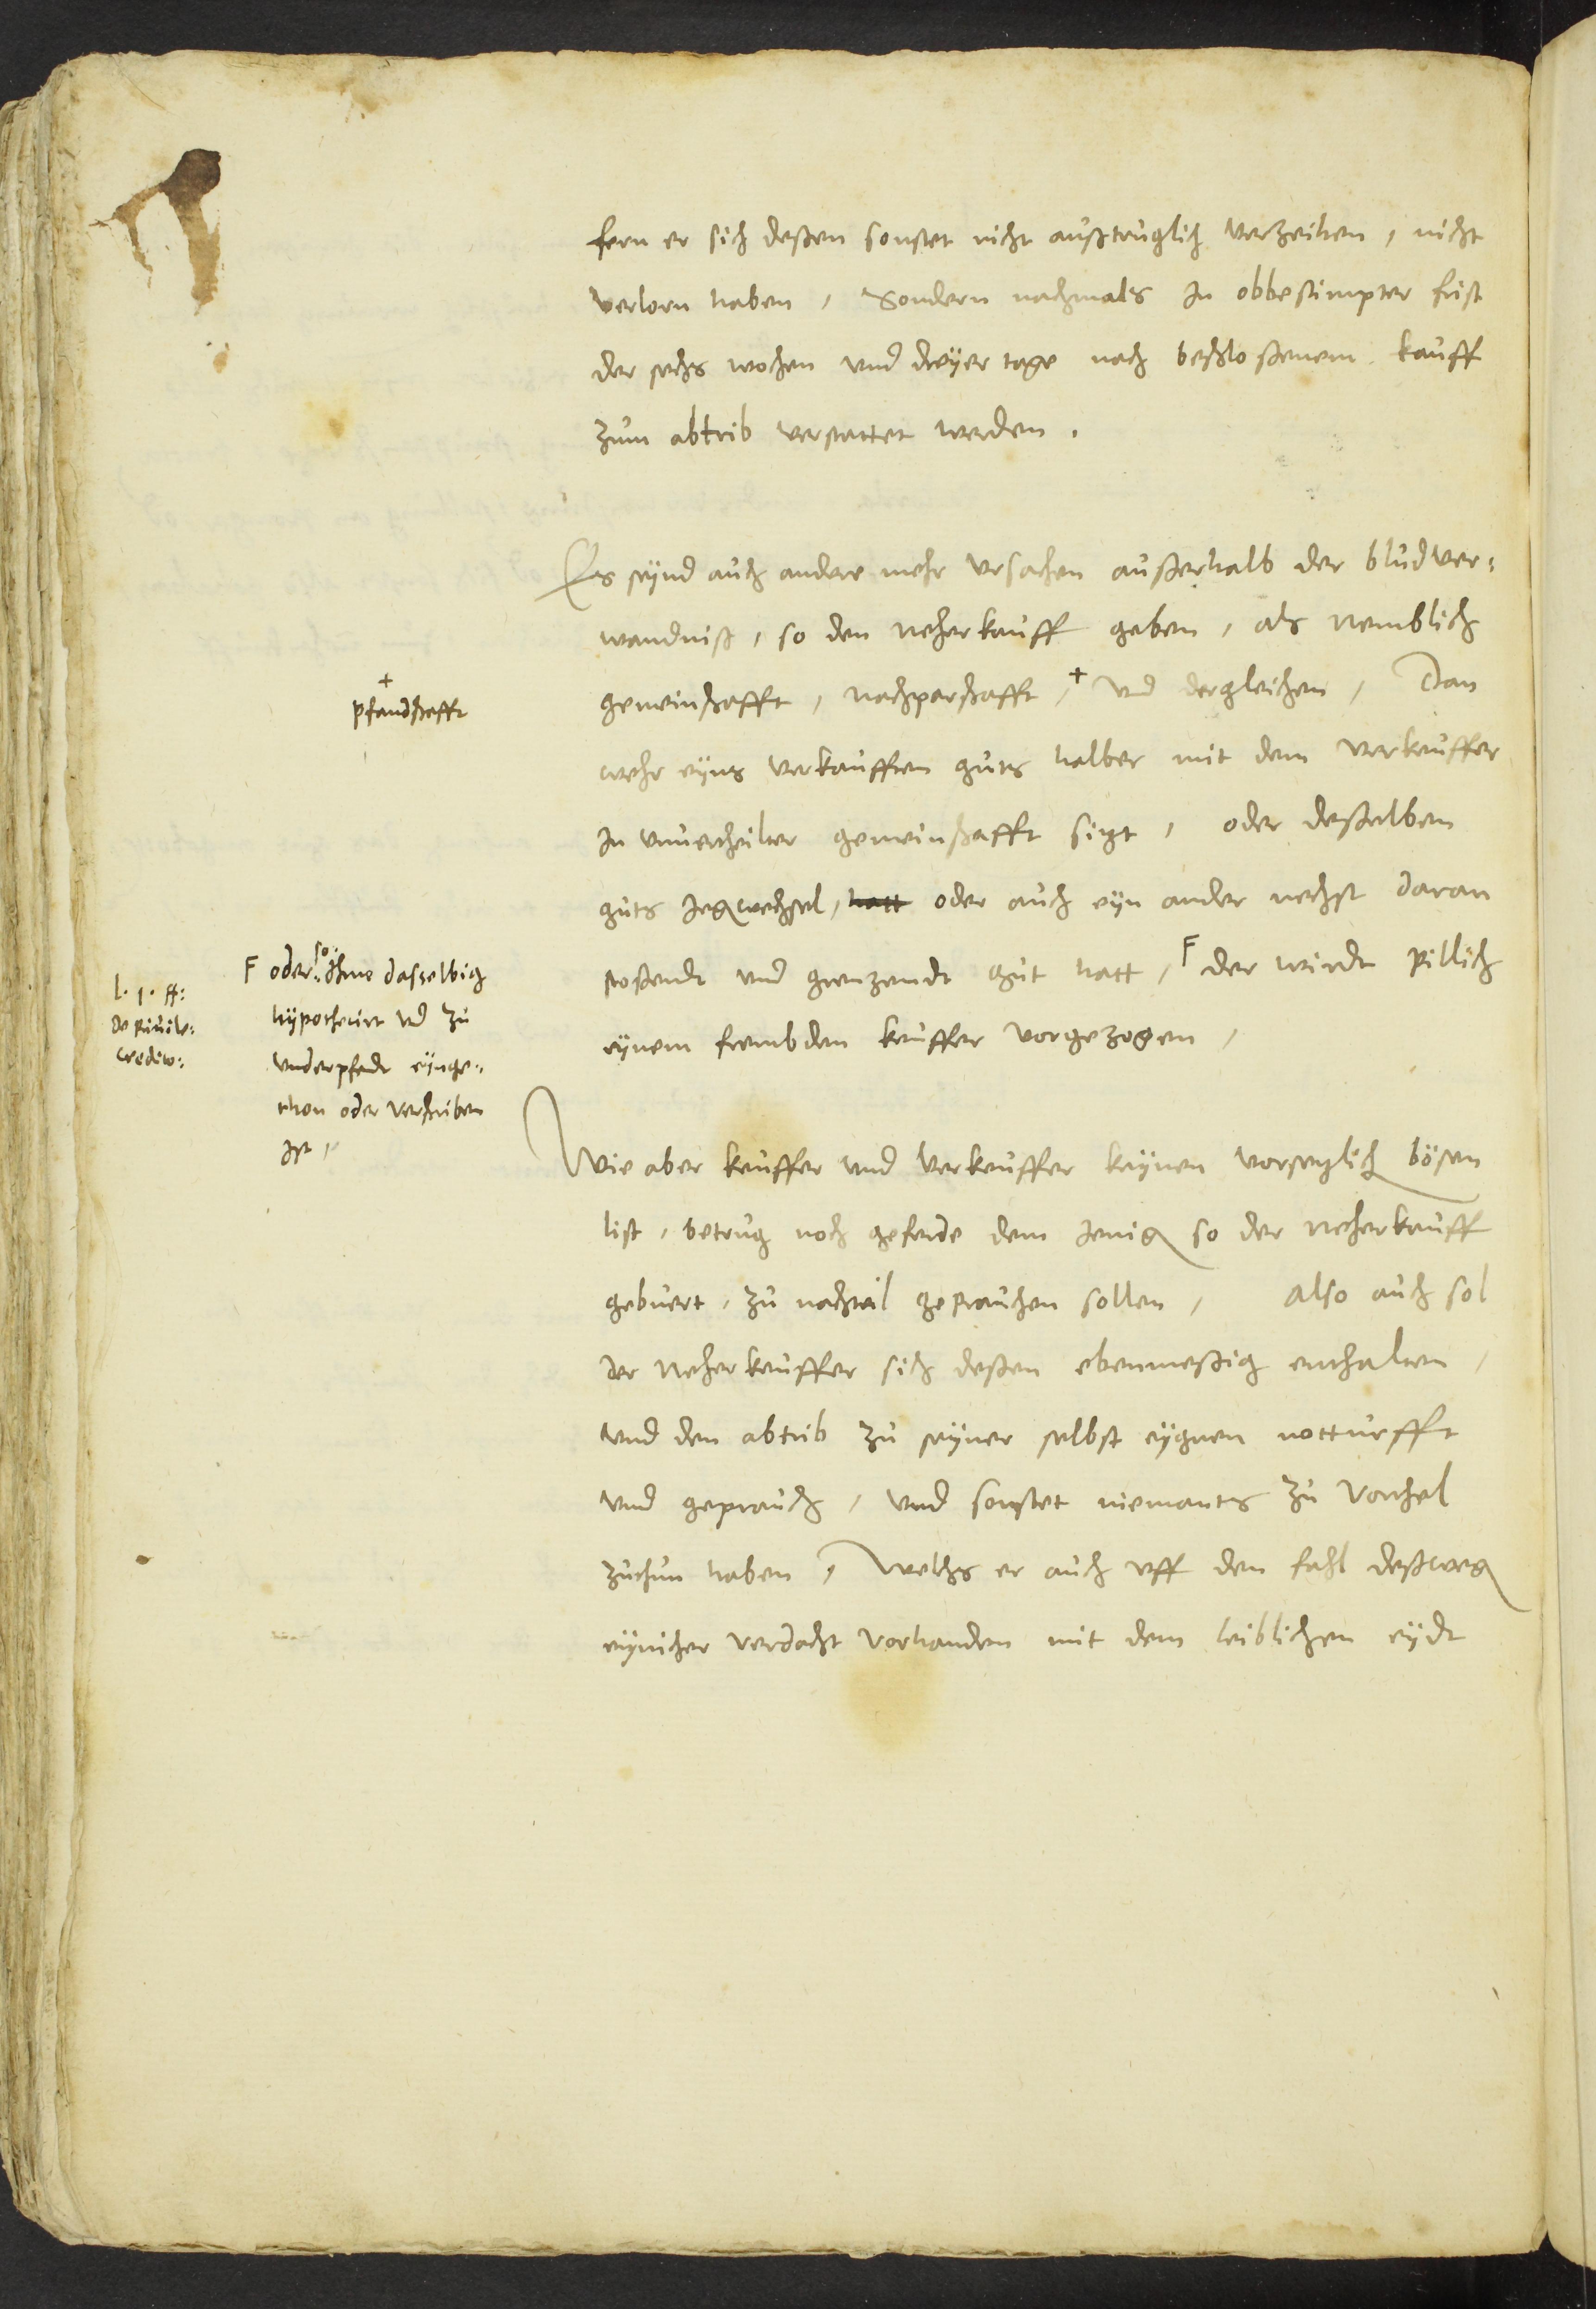 fern er sich deßen sonstet nicht außtruglich verzeihen, nicht
verlorn haben, Sondern nachmals In obbestimpter frist
der sechs wochen vnd dreÿer tage nach beschloßenem kauff
zum abtrib verstattet werden.
Es seÿnd auch andere mehr vrsachen außerhalb der bludver:
wandniß, so den neherkauff geben, als nemblich
gemeinschafft, nachparschafft, + vnd dergleichen, Dan
+
pfandschafft
wehr eÿns verkaufften guts halber mit dem verkeuffer
In vnuertheilter gemeinschafft sizt, oder deßelben
guts hatt oder auch eÿn ander nechst daran
stoßendt vnd grenzendt gut hatt, F der wirdt pillich
eÿnem frembden keuffer vorgezogen,
F oder so Ihme dasselbig
hÿpothecirt vnd zu
vnderpfandt eÿnge:
thon oder verschriben
Ist,
l. 1. ff:
de privile:
creditor:
Wie aber keuffer vnd verkeuffer keÿnen vorsezlich bösen
list, betrug noch geferde dem Jenigen so der neherkauff
gebuert, zu nachteil geprauchen sollen, Also auch sol
der neherkeuffer sich deßen ebenmeßig enthalten,
vnd den abtrib zu seÿner selbst eÿgnen notturfft
vnd geprauch, vnd sonstet niemants zu vorthel
zuthun haben, Welchs er auch vff den fahl deßwegen
eÿnicher verdacht vorhanden mit dem leiblichen eÿdt